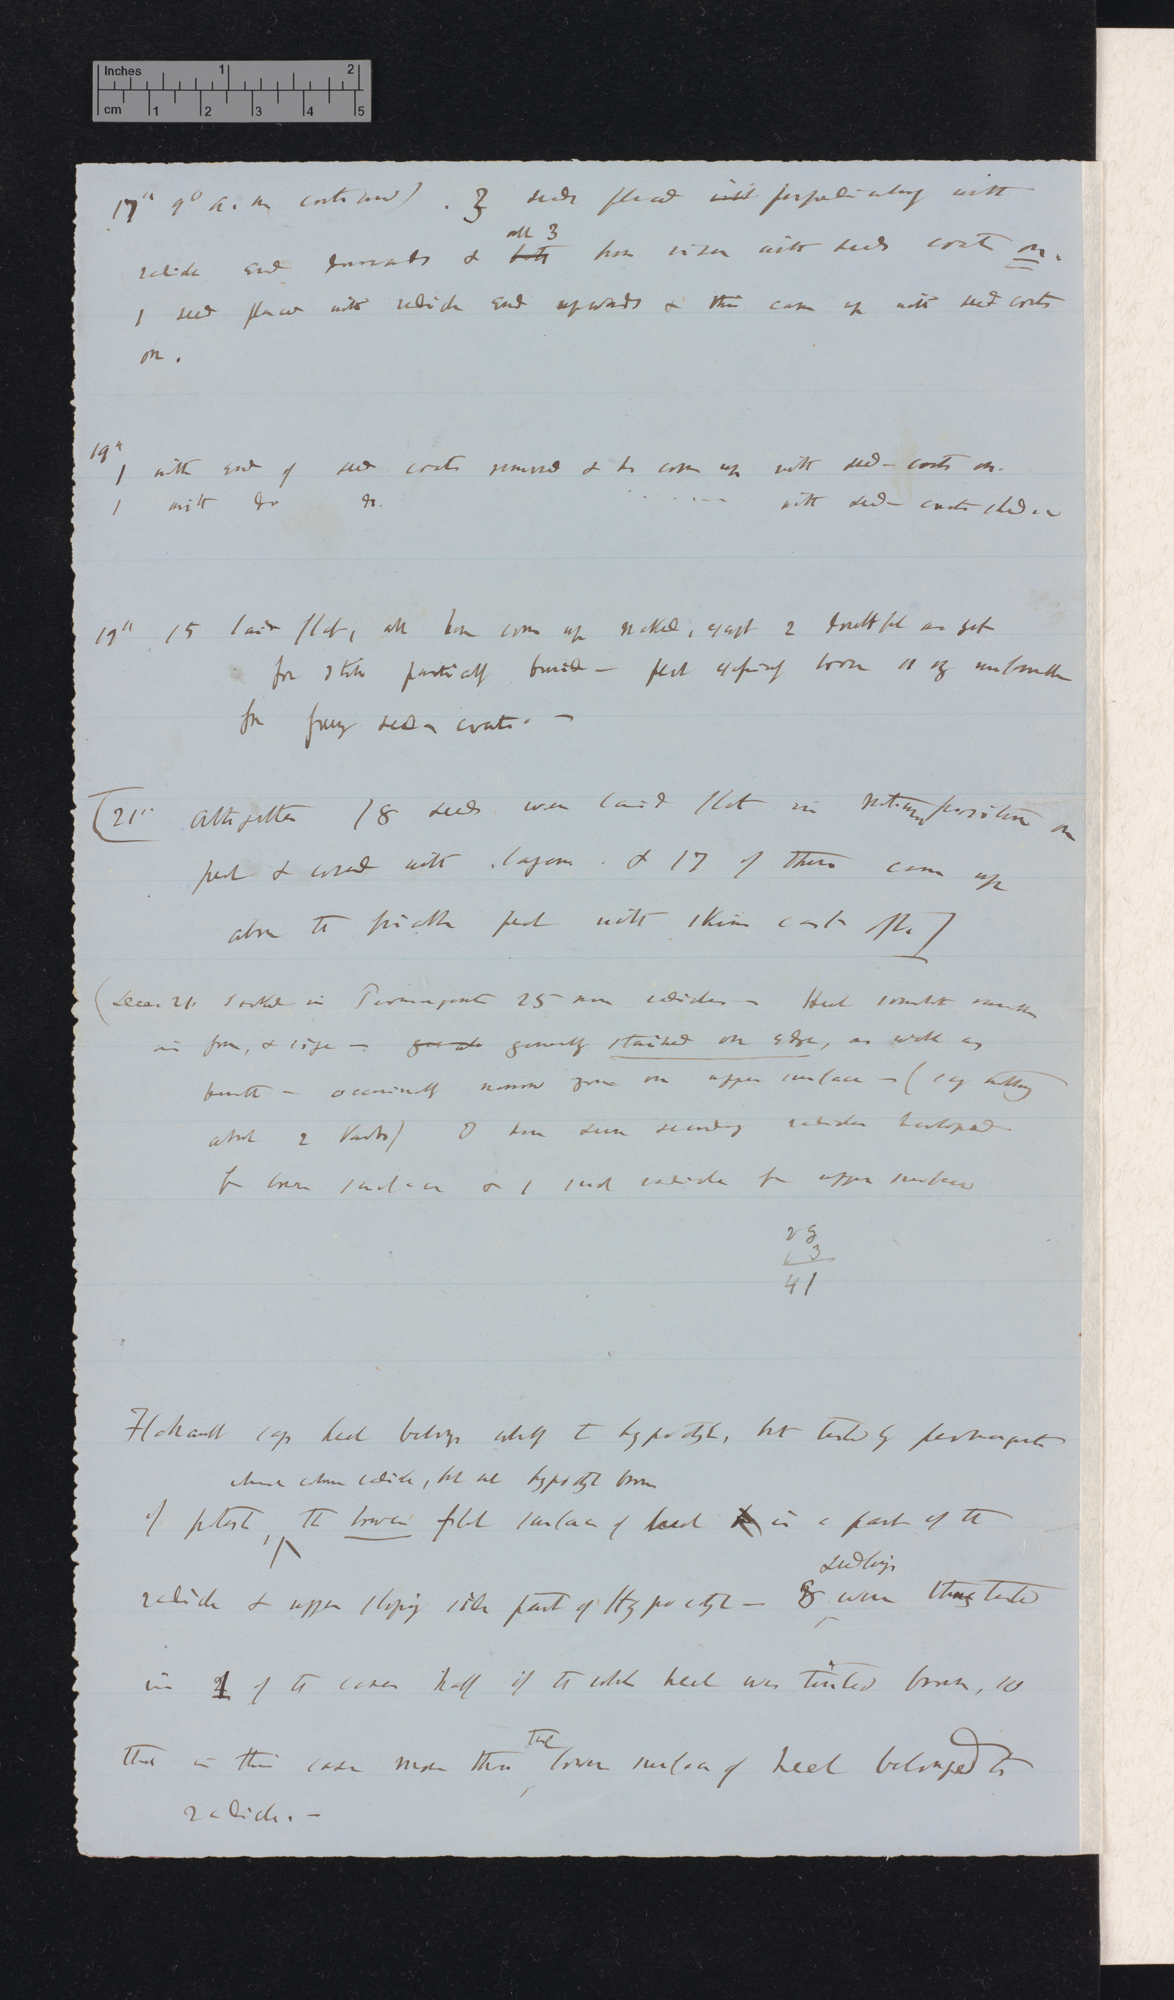 Inches 1 2
cm 1 2 3 4 5
17th 9° a. m continued) . 3 seeds placed with perpendicularly with
all 3
radicle end downwards & both have risen with seed coats on.
1 seed placed with radicle end upwards & this came up with seed coats
on.
19th
1 with end of seed coats removed & do come up with seed-coats on.
1 with do do. with seed-coats shed
19th 15 laid flat, all have come up naked, except 2 doubtful as yet
for still partially buried — peat
for freeing seed-coats. —
[21st Altogether 18 seeds were laid flat in natural position on
peat & covered with & 17 of them came up
above the peat with skins cast off.]
(Dec 21. soaked in Permanganate 25 radicles — Heel
in form, & size — generally stained on edge, as well as
beneath — occasionally narrow zone on upper surface — (say
about 2 I have seen secondary radicles developed
from lower surface & 1 such radicle from upper surface
28
13
41
Flahault says heel belongs wholly to hypocotyl, but tested by permanganate
radicle, but not hypocotyl brown
of potash, the lower flat surface of heel is a part of the
seedlings
radicle & upper sloping side part of Hypocotyl — 8 were thus tested
in 1 of the cases half of the whole heel was tinted brown, so
the
that in this case more than lower surface of heel belonged to
radicle. —